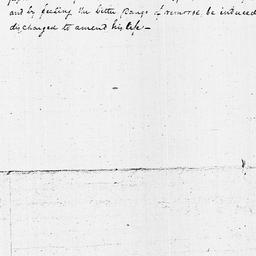 and by feeling the better pangs of remorse, be induced
discharged to amend his life —